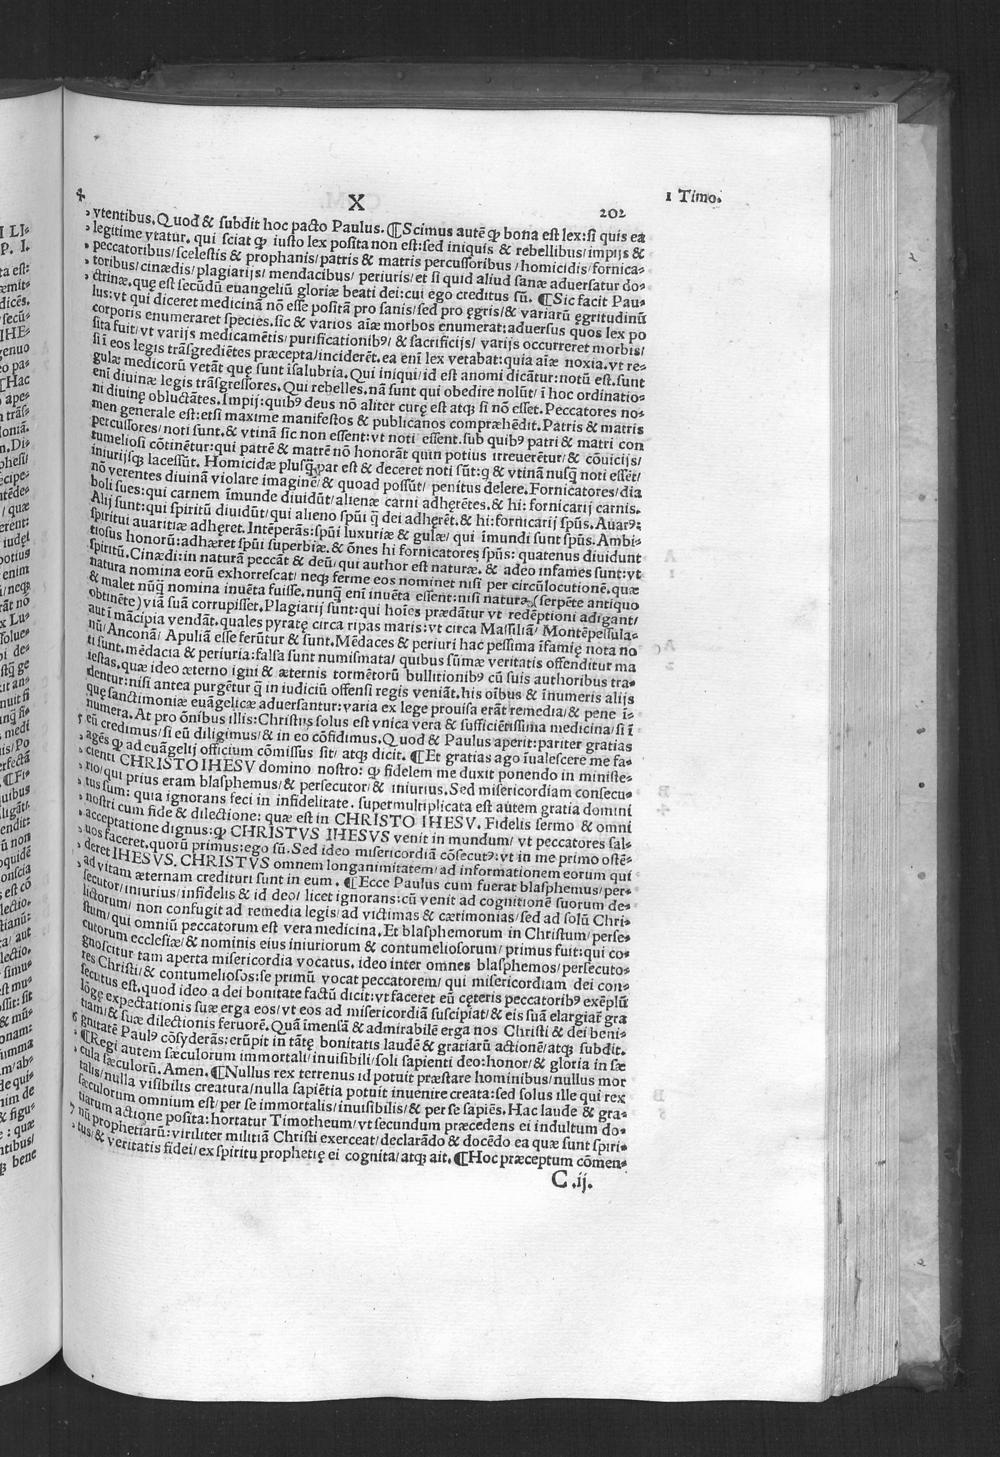 X
202
1 Timo.
4
ytentibus. Quod & subdit hoc pacto Paulus. ¶Scimus autē ꝙ bona est lex: si quis ea
legitime vtatur. qui sciat ꝙ iusto lex posita non est: sed iniquis & rebellibus/ impijs &
peccatoribus/ scelestis & prophanis/ patris & matris percussoribus/ homicidis/ fornica-
toribus/ cinædis/ plagiarijs/ mendacibus/ periuris/ et si quid aliud sanæ aduersatur do-
ctrinæ. quę est secūdū euangeliū gloriæ beati dei: cui ego creditus sū. ¶Sic facit Pau-
lus: vt qui diceret medicinā nō esse positā pro sanis/ sed pro ęgris/ & variarū ęgritudinū
corporis enumeraret species. sic & varios aīæ morbos enumerat: aduersus quos lex po
sita fuit/ vt varijs medicamētis/ purificationibꝰ/ & sacrificijs/ varijs occurreret morbis/
si ī eos legis trāsgrediētes præcepta/ inciderēt. ea enī lex vetabat: quia aīæ noxia. vt re-
gulæ medicorū vetāt quę sunt īsalubria. Qui iniqui/ id est anomi dicātur: notū est. sunt
enī diuinæ legis trāsgressores. Qui rebelles. nā sunt qui obedire nolūt/ ī hoc ordinatio-
ni diuinę obluctātes. Impij: quibꝰ deus nō aliter curę est atqꝫ si nō esset. Peccatores no-
men generale est: etsi maxime manifestos & publicanos compræhēdit. Patris & matris
percussores/ noti sunt. & vtinā sic non essent: vt noti essent. sub quibꝰ patri & matri con
tumeliosi cōtinētur: qui patrē & matrē nō honorāt quin potius irreuerētur/ & cōuicijs/
iniurijsqꝫ lacessūt. Homicidæ plusꝗ̄ par est & deceret noti sūt: q & vtinā nusꝗ̄ noti essēt/
nō verentes diuinā violare imaginē/ & quoad possūt/ penitus delere. Fornicatores/ dia
boli sues: qui carnem īmunde diuidūt/ alienæ carni adhęrētes. & hi: fornicarij carnis.
Alij sunt: qui spiritū diuidūt/ qui alieno spūi q̄ dei adhęrēt. & hi: fornicarij spūs. Auarꝰ:
spiritui auaritiæ adhęret. Intēperās: spūi luxuriæ & gulæ/ qui īmundi sunt spūs. Ambi-
tiosus honorū: adhæret spūi superbiæ. & ōnes hi fornicatores spūs: quatenus diuidunt
spiritū. Cinædi: in naturā peccāt & deū/ qui author est naturæ. & adeo infames sunt: vt
natura nomina eorū exhorrescat/ neqꝫ ferme eos nominet nisi per circūlocutionē. quæ
& malet nūꝗ̄ nomina inuēta fuisse. nunꝗ̄ enī inuēta essent: nisi natura (serpēte antiquo
obtinēte) viā suā corrupisset. Plagiarij sunt: qui hoīes prædātur vt redēptioni adigant/
aut ī mācipia vendāt. quales pyratę circa ripas maris: vt circa Massiliā/ Montēpessula-
nū/ Anconā/ Apuliā esse ferūtur & sunt. Mēdaces & periuri hac pessima īfamię nota no
ti sunt. mēdacia & periuria: falsa sunt numismata/ quibus sūmæ veritatis offenditur ma
iestas. quæ ideo æterno igni & æternis tormētorū bullitionibꝰ cū suis authoribus tra-
dentur: nisi antea purgētur q̄ in iudiciū offensi regis veniāt. his oībus & īnumeris alijs
quę sanctimoniæ euāgelicæ aduersantur: varia ex lege prouisa erāt remedia/ & pene ī-
numera. At pro ōnibus illis: Christus solus est vnica vera & sufficiētissima medicina/ si ī
5 eū credimus/ si eū diligimus/ & in eo cōfidimus. Quod & Paulus aperit: pariter gratias
agēs ꝙ ad euāgelij officium cōmissus sit/ atqꝫ dicit. ¶Et gratias ago īualescere me fa-
cienti CHRISTO IHESV domino nostro: ꝙ fidelem me duxit ponendo in ministe-
rio/ qui prius eram blasphemus/ & persecutor/ & iniurius. Sed misericordiam consecu-
tus sum: quia ignorans feci in infidelitate. supermultiplicata est autem gratia domini
nostri cum fide & dilectione: quæ est in CHRISTO IHESV. Fidelis sermo & omni
acceptatione dignus: ꝙ CHRISTVS IHESVS venit in mundum/ vt peccatores sal-
uos faceret. quorū primus: ego sū. Sed ideo misericordiā cōsecutꝰ: vt in me primo ostē-
deret IHESVS CHRISTVS omnem longanimitatem/ ad informationem eorum qui
ad vitam æternam credituri sunt in eum. ¶Ecce Paulus cum fuerat blasphemus/ per-
secutor/ iniurius/ infidelis & id deo/ licet ignorans: cū venit ad cognitionē suorum de-
lictorum/ non confugit ad remedia legis/ ad victimas & cærimonias/ sed ad solū Chri-
stum/ qui omniū peccatorum est vera medicina. Et blasphemorum in Christum/ perse-
cutorum ecclesiæ/ & nominis eius iniuriorum & contumeliosorum/ primus fuit: qui co-
gnoscitur tam aperta misericordia vocatus. ideo inter omnes blasphemos/ persecuto-
res Christi/ & contumeliosos: se primū vocat peccatorem/ qui misericordiam dei con-
secutus est. quod ideo a dei bonitate factū dicit: vt faceret eū cęteris peccatoribꝰ exēplū
lōgę expectationis suæ erga eos/ vt eos ad misericordiā suscipiat/ & eis suā elargiat̄ gra
tiam/ & suæ dilectionis feruorē. Quā īmensā & admirabilē erga nos Christi & dei beni-
6 gnitatē Paulꝰ cōsyderās: erūpit in tātę bonitatis laudē & gratiarū actionē/ atqꝫ subdit.
¶Regi autem sæculorum immortali/ inuisibili/ soli sapienti deo: honor/ & gloria in sæ
cula sæculorū. Amen. ¶Nullus rex terrenus id potuit præstare hominibus/ nullus mor
talis/ nulla visibilis creatura/ nulla sapiētia potuit inuenire creata: sed solus ille qui rex
sæculorum omnium est/ per se immortalis/ inuisibilis/ & per se sapiēs. Hac laude & gra-
tiarum actione posita: hortatur Timotheum/ vt secundum præcedens ei indultum do-
7 nū prophetiarū: viriliter militiā Christi exerceat/ declarādo & docēdo ea quæ sunt spiri-
tus/ & veritatis fidei/ ex spiritu prophetię ei cognita/ atqꝫ ait. ¶Hoc præceptum cōmen-
C.ij.